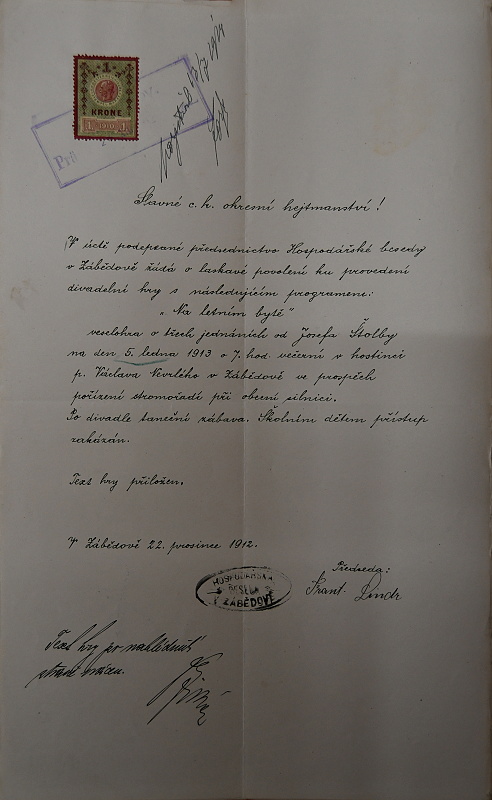 1
KRONE
1 1910 1
Slavné c. k. okresní hejtmanství!
V úctě podepsané předsednictvo Hospodářské besedy
v Zábědově žádá o laskavé povolení ku provedení
divadelní hry s následujícím programem:
„Na letním bytě"
veselohra o třech jednáních od Josefa Štolby
na den 5. ledna 1913 o 7. hod. večerní v hostinci
p. Václava Vevrlého v Zábědově ve prospěch
pořízení stromořadí při obecní silnici.
Po divadle taneční zábava. Školním dětem přístup
zakázán.
Text hry přiložen.
V Zábědově 22. prosince 1912.
Předseda:
Frant.
HOSPODÁŘSKÁ
BESEDA
V ZÁBĚDOVĚ
Text hry po nahlédnutí
straně vrácen.